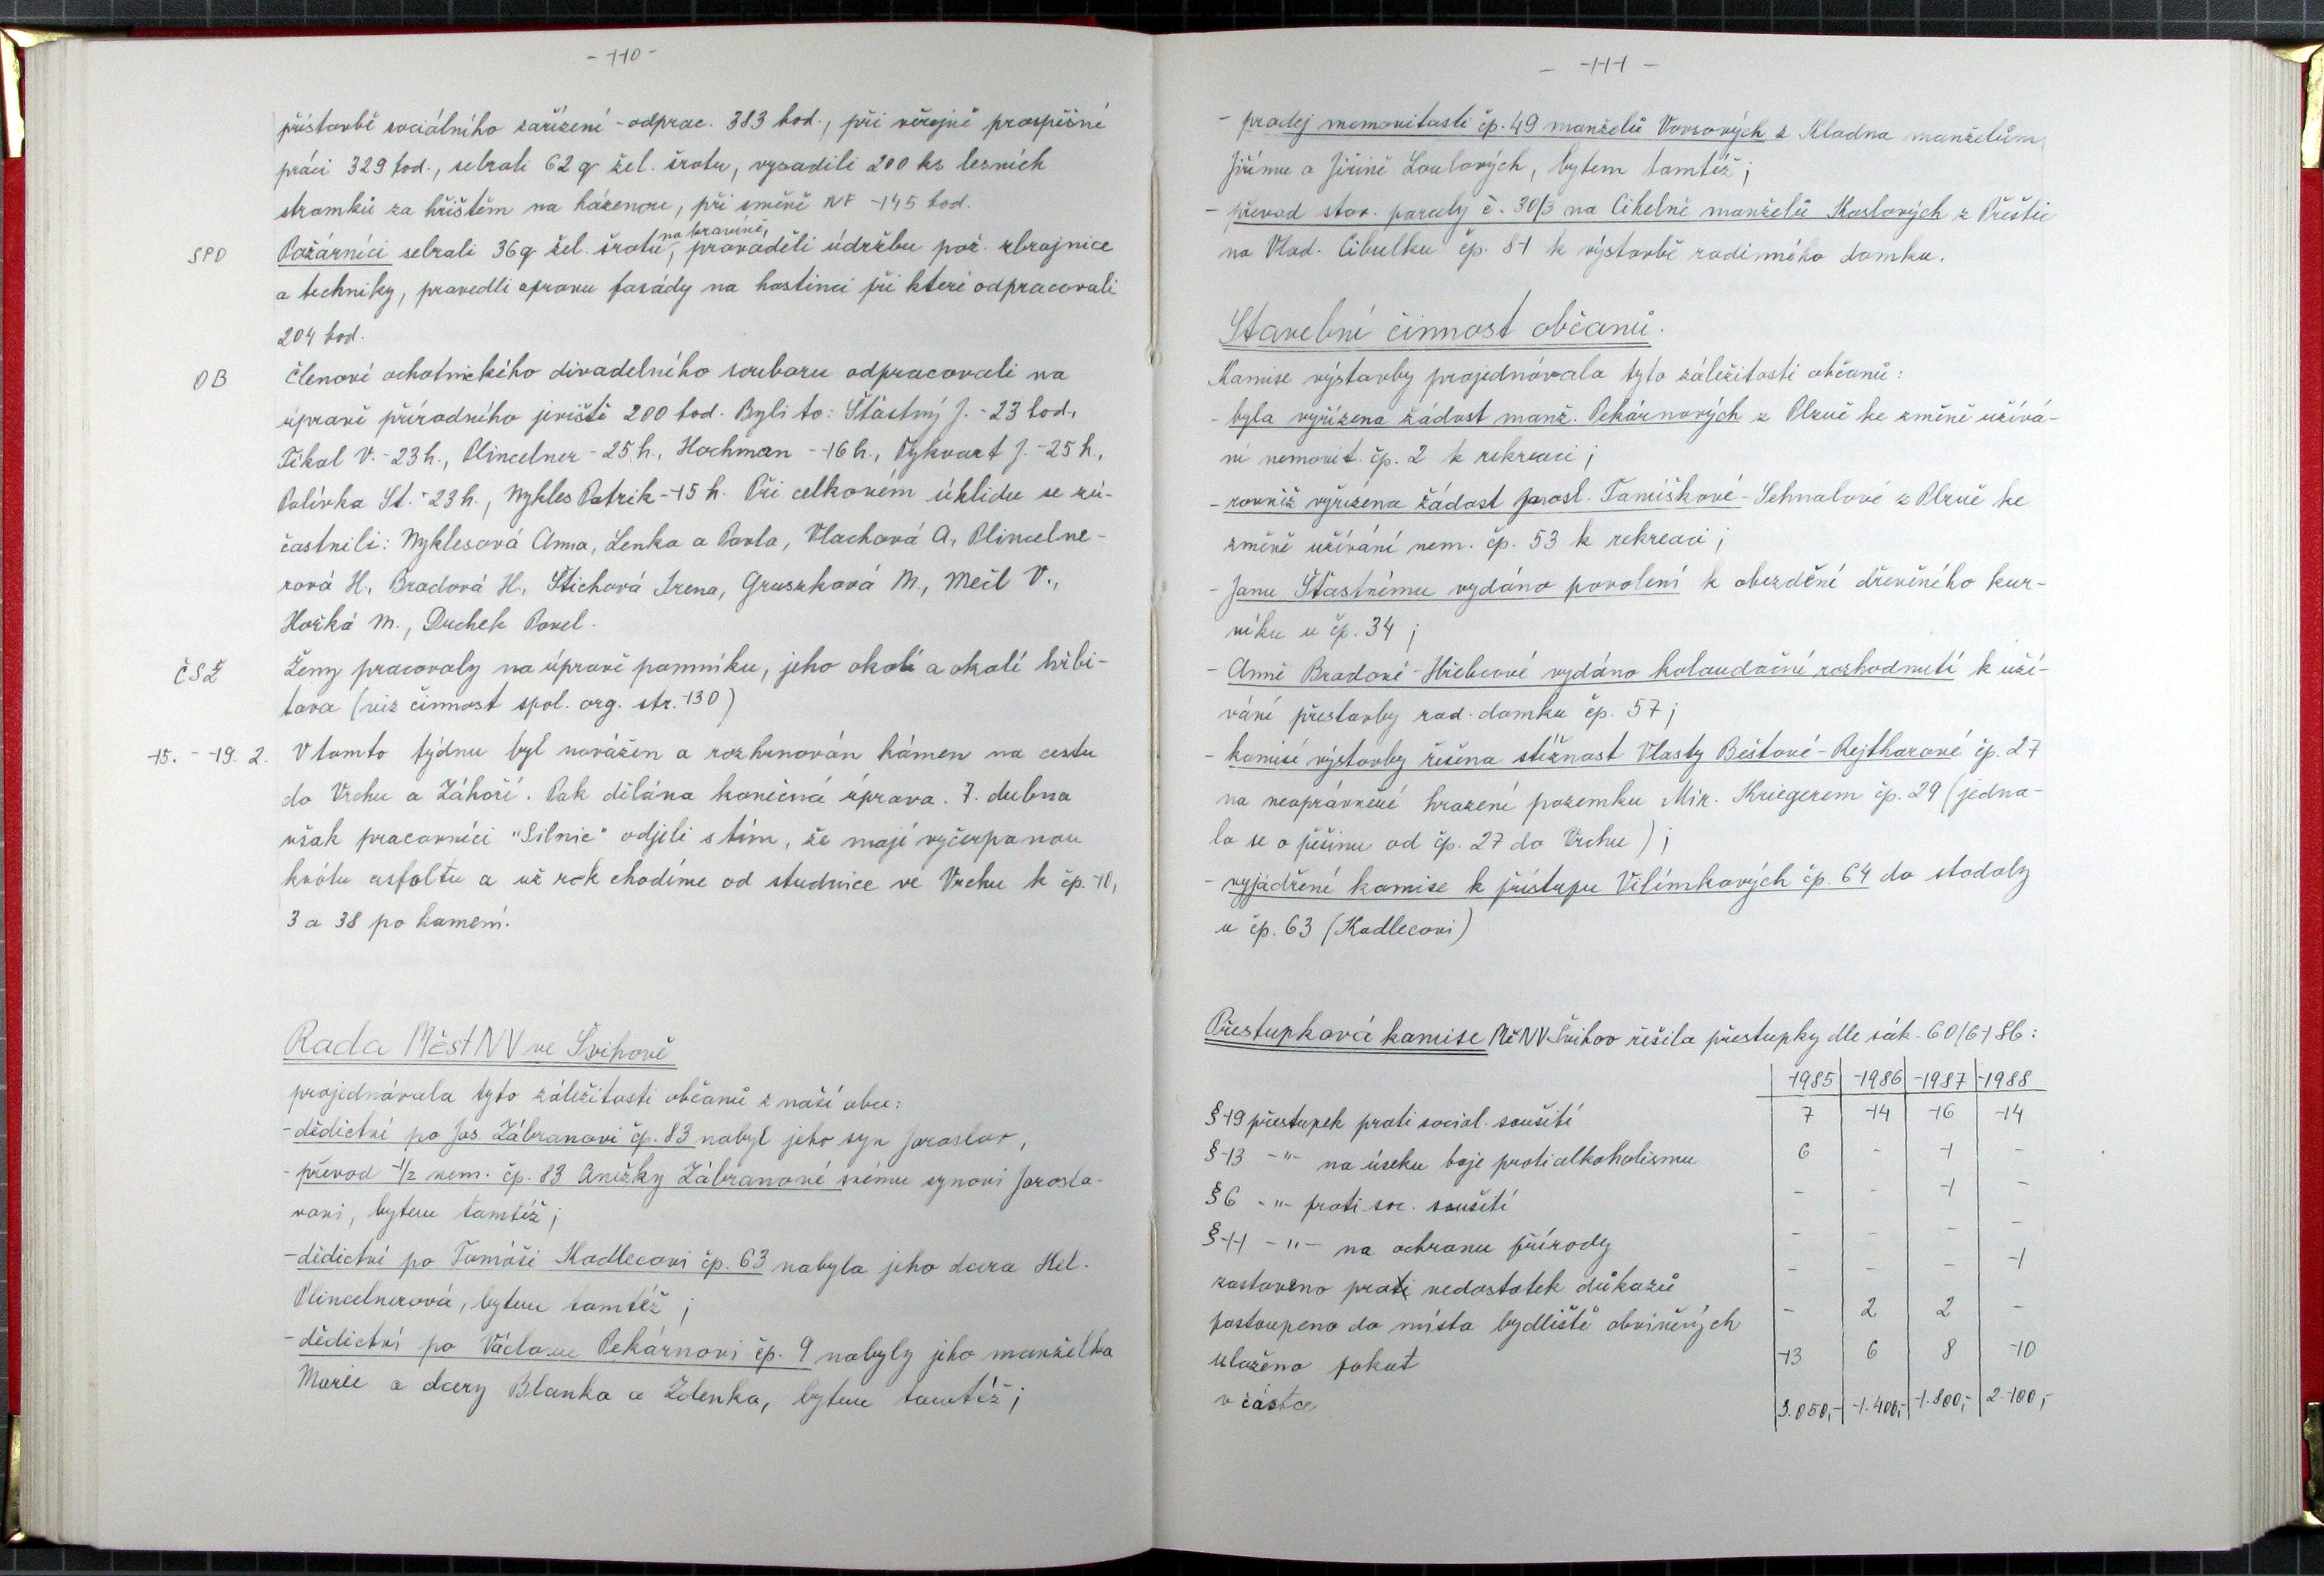 - 110 -
přístavbě sociálního zařízení - odprac. 383 hod., při veřejně prospěšné
práci 329 hod., sebrali 62 q žel. šrotu, vysadili 200 ks lesních
stromků za hřištěm na házenou, při směně NF 145 hod.
na kravíně,
SPO Požárníci sebrali 36q žel. šrotu, prováděli údržbu pož. zbrojnice
a techniky, provedli opravu fasády na hostinci při které odpracovali
204 hod.
OB Členové ochotnického divadelního souboru odpracovali na
úpravě přírodního jeviště 200 hod. Byli to: Šťastný J. - 23 hod,
Tikal V. - 23 h., Plincelner - 25 h., Hochman - 16 h., Pykvart J. - 25 h.,
Polívka St. - 23 h., Nykles Patrik - 15 h. Při celkovém úklidu se zú-
častnili: Nyklesová Anna, Lenka a Pavla, Vlachová A, Plincelne-
rová H, Bradová H, Štichová Irena, Gruszková M., Mečl V.,
Horká M., Duchek Pavel.
ČSŽ Ženy pracovaly na úpravě pomníku, jeho okolí a okolí hřbi-
tova (viz činnost spol. org. str. 130)
15. - 19. 2. V tomto týdnu byl navážen a rozhrnován kámen na cestu
do Vrchu a Záhoří. Pak dělána konečná úprava. 7. dubna
však pracovníci "Silnic" odjeli s tím, že mají vyčerpanou
kvótu asfaltu a už rok chodíme od studnice ve Vrchu k čp. 10,
3 a 38 po kamení.
Rada MěstNV ve Švihově
projednávala tyto záležitosti občanů z naší obce:
- dědictví po Jos. Zábranovi čp. 83 nabyl jeho syn Jaroslav,
- převod 1/2 nem. čp. 83 Anežky Zábranové svému synovi Jarosla-
vovi, bytem tamtéž;
- dědictví po Tomáši Kadlecovi čp. 63 nabyla jeho dcera Hel.
Plincelnerová, bytem tamtéž;
- dědictví po Václavu Pekárnovi čp. 9 nabyly jeho manželka
Marie a dcery Blanka a Zdenka, bytem tamtéž;
- 111 -
- prodej nemovitosti čp. 49 manželů Vorsových z Kladna manželům
Jiřímu a Jiřině Loulových, bytem tamtéž;
- převod stav. parcely č. 30/3 na Cihelně manželů Koslových z Přeštic
na Vlad. Cibulku čp. 81 k výstavbě rodinného domku.
Stavební činnost občanů.
Komise výstavby projednávala tyto záležitosti občanů:
- byla vyřízena žádost manž. Pekárnových z Plzně ke změně užívá-
ní nemovit. čp. 2 k rekreaci;
- rovněž vyřízena žádost Tomiškové - Sehnalové z Plzně ke
změně užívání nem. čp. 53 k rekreaci;
- Janu Šťastnému vydáno povolení k obezdění dřevěného kur-
níku u čp. 34;
- Anně Bradové - Hřebcové vydáno kolaudační rozhodnutí k uží-
vání přestavby rod. domku čp. 57;
- komisí výstavby řešena stížnost Vlasty Beštové - Rejtharové čp. 27
na neoprávněné hrazení pozemku Mir. Kriegerem čp. 29 (jedna-
lo se o pěšinu od čp. 27 do Vrchu);
- vyjádření komise k přístupu Vilímkových čp. 64 do stodoly
u čp. 63 (Kadlecovi)
Přestupková komise MěNV Švihov řešila přestupky dle zák. 60/61 86:
1985 1986 1987 1988
§ 19 přestupek proti social. soužití 7 14 16 14
§ 13 - " - na úseku boje proti alkoholismu 6 - 1 -
§ 6 - " - proti soc. soužití - - 1 -
§ 11 - " - na ochranu přírody - - - -
zastaveno proti nedostatek důkazů - - - 1
postoupeno do místa bydliště obviněných - 2 2 -
uloženo pokut 13 6 8 10
v částce 3.050,- 1.400,- 1.800,- 2.100,-